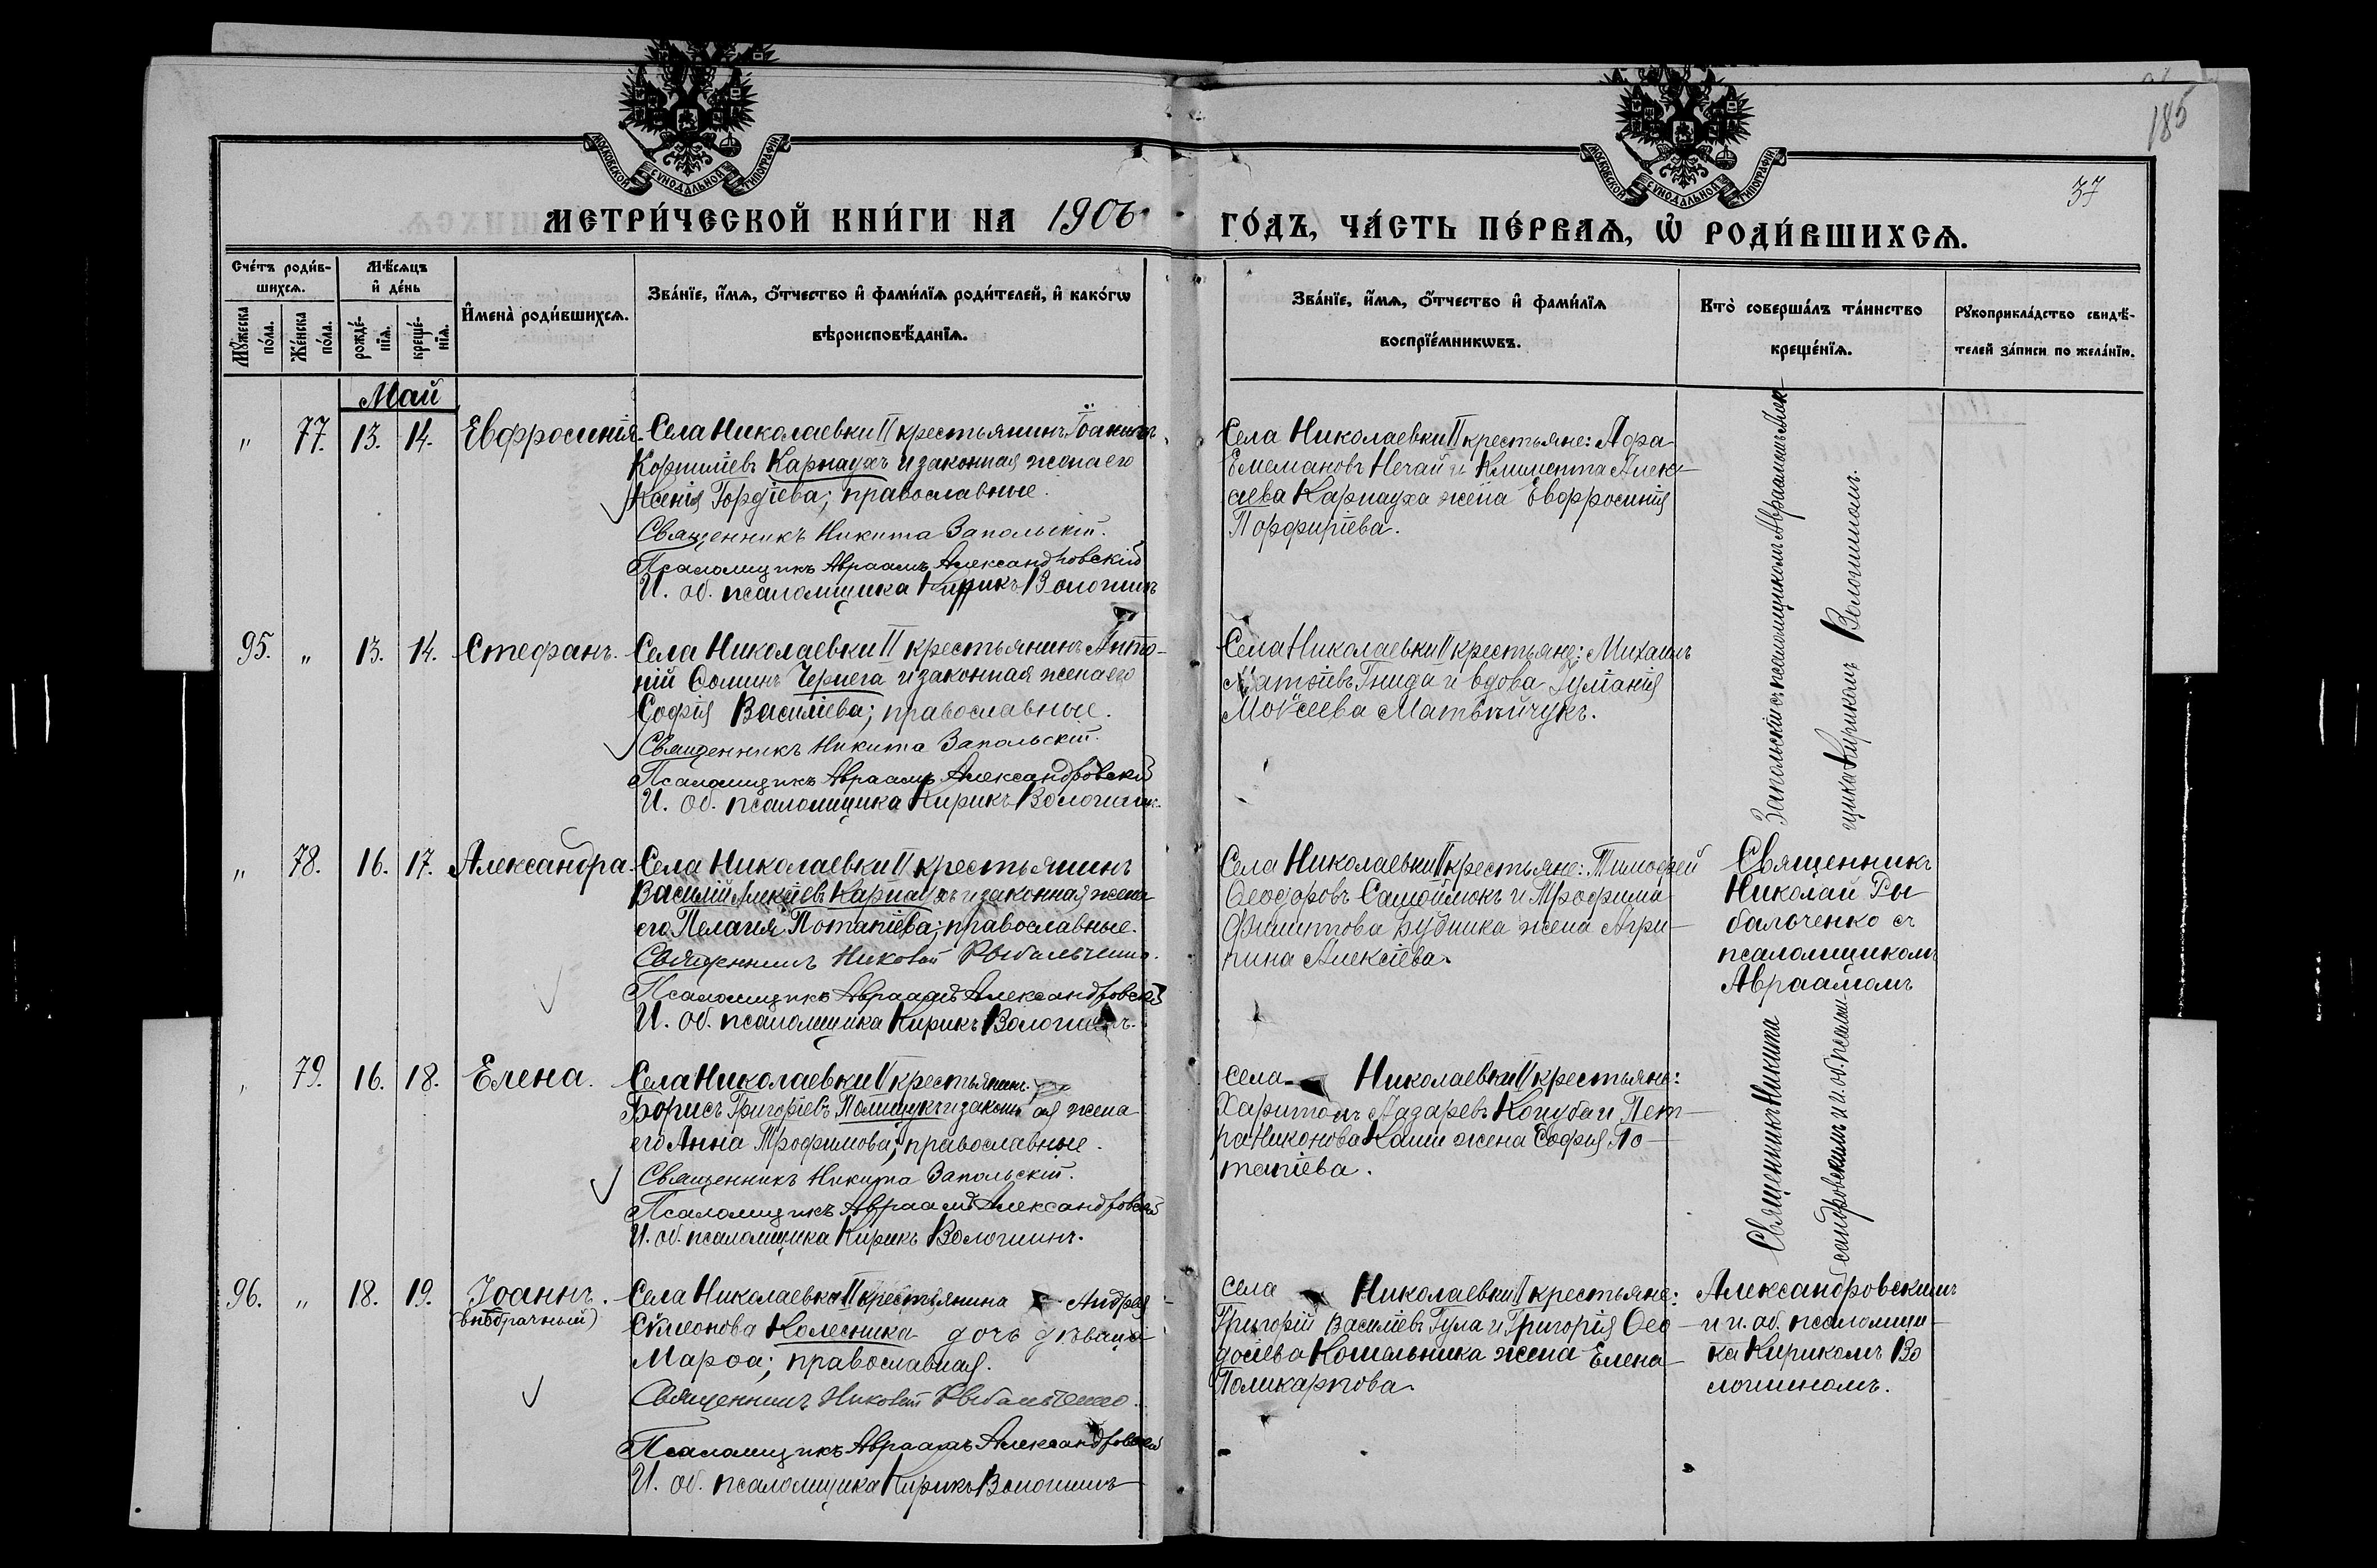 185
37
МОСКОВСКОЙ СѴНОДАЛЬНОЙ ТИПОГРАФІИ
МОСКОВСКОЙ СѴНОДАЛЬНОЙ ТИПОГРАФІИ
МЕТРИ́ЧЕСКОЙ КНИ́ГИ НА 1906
ГО́ДЪ, ЧА́СТЬ ПЕ́РВАѦ, Ѡ҆ РОДИ́ВШИХСѦ.
Сче́тъ роди́в-
шихсѧ.
Мѹ́жеска по́ла.
Же́нска по́ла.
Мѣ́сѧцъ и҆ де́нь
рожде́-нїѧ.
креще́-нїѧ.
И҆мена̀ роди́вшихсѧ.
Зва́нїе, и҆́мѧ, ѻ҆́тчество и҆ фами́лїѧ роди́телей, и҆ како́гѡ
вѣроисповѣ́данїѧ.
Зва́нїе, и҆́мѧ, ѻ҆́тчество и҆ фами́лїѧ
воспрїе́мникѡвъ.
Кто̀ соверша́лъ та́инство
креще́нїѧ.
Рꙋкоприкла́дство свидѣ́-
телей за́писи по жела́нїю.
Май
" 77. 13. 14. Евфросинія.
Села Николаевки II крестьянинъ Іоаннъ
Корниліевъ Карнаухъ и законная жена его
Ксенія Гордіева; православные.
Священникъ Никита Запольскій.
Псаломщикъ Авраамъ Александровскій
И. об. псаломщика Кирикъ Вологинъ
Села Николаевки II крестьяне:
Нечай и Климента Алек-
сіева Карнауха жена Евфросинія
Порфиріева.
95. " 13. 14. Стефанъ.
Села Николаевки II крестьянинъ Анто-
ній Ѳоминъ Чернега и законная жена его
Софія Василіева; православные.
Священникъ Никита Запольскій.
Псаломщикъ Авраамъ Александровскій
И. об. псаломщика Кирикъ Вологинъ.
Села Николаевки II крестьяне: Михаилъ
Гнида и вдова Іуліанія
Моѵсеева Матвѣйчукъ.
" 78. 16. 17. Александра.
Села Николаевки II крестьянинъ
Василій Алексіевъ Карнаухъ и законная жена
его Пелагія Потапіева; православные.
Священникъ Николай Рыбальченко.
Псаломщикъ Авраамъ Александровскій
И. об. псаломщика Кирикъ Вологинъ.
Села Николаевки II крестьяне: Тимофей
Ѳеодоровъ Самойлюкъ и Трофима
Филиппова Будника жена Агри-
пина Алексіева.
Священникъ
Николай Ры
бальченко съ
псаломщикомъ
Авраамомъ
79. 16. 18. Елена.
Села Николаевки II крестьянинъ
Борисъ Григоріевъ Полищукъ и законная жена
его Анна Трофимова; православные.
Священникъ Никита Запольскій.
Псаломщикъ Авраамъ Александровскій
И. об. псаломщика Кирикъ Вологинъ.
села Николаевки II крестьяне:
Харитонъ Лазаревъ Коцуба и Пет-
ра Никонова жена Софія По-
тапіева.
Священникъ Никита Запольскій съ псаломщикомъ Авраамомъ Алек
сандровскимъ и и. об. псалом-щика Кирикомъ Вологиномъ.
96. " 18. 19. Іоаннъ.
(внѣбрачный)
Села Николаевки II крестьянина Андрея
Сѵмеонова Колесника дочь дѣвица
Марѳа; православная.
Священникъ Николай Рыбальченко.
Псаломщикъ Авраамъ Александровскій
И. об. псаломщика Кирикъ Вологинъ
села Николаевки II крестьяне:
Григорій Василіевъ Гула и Григорія Ѳео-
досіева Котельника жена Елена
Поликарпова.
Александровскимъ
и и. об. псаломщи-
ка Кирикомъ Во
логиномъ.